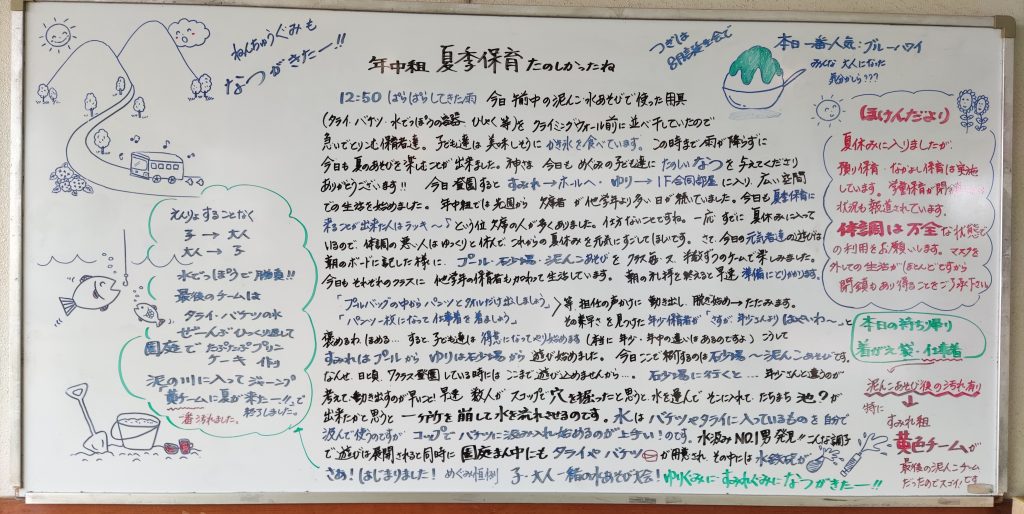 ねんちゅうぐみも
なつがきたー!!
年中組 夏季保育 たのしかったね
つぎは
8月誕生会で
本日一番人気:ブルーハワイ
みんな 大人になった
気分かしら???
12:50 ぱらぱらしてきた雨 今日午前中の泥んこ・水あそびで使った用具
(タライ・バケツ・水でっぽうの容器 ひしゃく等)を クライミングウォール前に並べ干していたので
急いでとりこむ保育者達。子ども達は 美味しそうに かき氷を食べています。この時まで雨が降らずに
今日も夏のあそびを楽しむことが出来ました。神さま 今日もめぐみの子ども達に たのしいなつを与えてくださり
ありがとうございます!! 今日登園すると すみれ→ホールへ・ゆり→1F合同部屋に入り 広い空間
での生活を始めました。年中組では 先週から 欠席者が他学年より多い日が続いていました。今日も夏季保育に
来ることが出来た人はラッキー〜♪という位 欠席の人が多くありました。仕方ないことですね。一応 すでに夏休みに入って
いるので、体調の悪い人はゆっくりと休んで これからの夏休みを元気にすごしてほしいです。さて、今日の元気者達の遊びは
朝のボードに記した様に、プール・石少場・泥んこあそびをクラス毎・又 縦割りのチームで楽しみました。
今日もそれぞれのクラスに 他学年の保育者もかわって生活しています。朝の礼拝を終えると早速 準備にとりかかります。
「プールバッグの中からパンツとタオルだけ出しましょう」
「パンツ一枚になって仕事着を着ましょう」
等 担任の声かけに 動き出し 脱ぎ始め→たたみます。
その素早さを見つけた年少保育者が「さすが、年少さんよりはやいわ〜」と
褒めるわ、ほめる… すると 子ども達は 得意になってやり始めます(本当に 年少・年中の違いはあるのですよ) こうして
すみれはプールから ゆりは石少場から 遊びが始めました。今日ここで綴するのは石少場〜泥んこあそびです。
なんせ、日頃 7クラス登園している時には ここまで遊び込めませんから…。石少場に行くと… 年少さんと違うのが
考えて動き出すのが早いこと! 早速 数人がスコップで穴を掘ったと思うと 水を運んで そこに入れて たちまち池?が
出来たかと思うと 一ヶ所を崩して水を流れさせるのです。水はバケツやタライに入っているものを自分で
汲んで使うのですが コップでバケツに汲み入れ始めるのが上手い!のです。水汲みNO.1男発見!こんな調子
で遊びは展開されると同時に 園庭まん中にも タライやバケツが用意され その中には水鉄砲が
さあ!はじまりました! めぐみ恒例 子・大人一緒の水あそび大会! ゆりぐみに すみれぐみに なつがきたー!!
えんりょすることなく
子→大人
大人→子
水でっぽうで勝負!!
最後のチームは
タライ・バケツの水
ぜーんぶひっくり返して
園庭でたぷたぷプリン
ケーキ 作り
泥の川に入ってジャーンプ
「黄チームに夏が来たーっ」で
終了しました。
一番汚れました。
(ほけんだより)
夏休みに入りましたが、
預り保育・なかよし保育は実施
しています。学童保育が閉
状況も報道されています。
体調は万全な状態で
の利用をお願いします。マスクを
外しての生活がほとんどですから
閉鎖もあり得ることをご了承下さい
本日の持ち帰り
着がえ袋・仕事着
泥んこあそび後の汚れ有り
特に
すみれ組
黄色チームが
最後の泥んこチーム
だったのでスゴイ!です